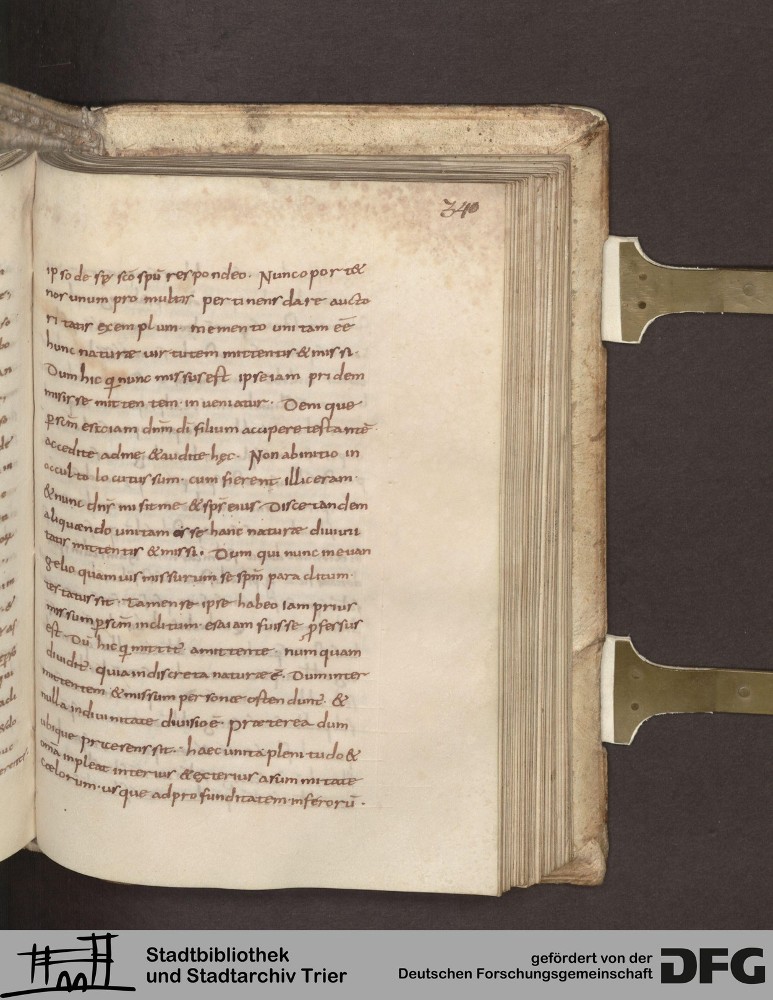 340
ipso de spū scō spū respondeo. Nunc oportet
nos unum pro multis pertinens dare aucto
ritatis exemplum. memento unitam eē
hunc naturae uirtutem mittentis & missi.
Dum hic qui nunc missus est ipse iam pridem
misisse mittentem inueniatur. Denique
ꝑ scm̄ esaiam dnm̄ dī filium accipere testante
accedite ad me & audite hęc. Non ab initio in
occulto locutus sum. cum fierent illic eram.
& nunc dns̄ misit me & sps̄ eius. Disce tandem
aliquando unitam esse hanc naturae diuini
tatis mittentis & missi. Dum qui nunc in euan
gelio quamuis missurum se spm̄ paraclitum
testatus sit. tamen se ipse habeo iam prius
missum ꝑ scm̄ inclitum esaiam fuisse ꝓfessus
est. Dū hic qui mittit& a mittente numquam
diuidit&. quia indiscreta naturae ē. Dum inter
mittentem & missum personae ostendunt&. &
nulla in diuinitate diuisio ē. Praeterea dum
ubique praesens sit. haec unita plenitudo &
omā impleat interius & exterius a summitate
caelorum. usque ad profunditatem inferorū.
Stadtbibliothek
und Stadtarchiv Trier
gefördert von der
Deutschen Forschungsgemeinschaft
DFG